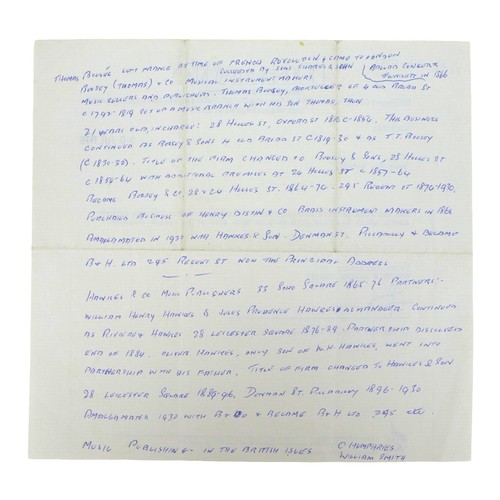 THOMAS BOOSÉ LEFT FRANCE AT TIME OF FRENCH REVOLUTION & CAME TO LONDON
SUCCEEDED BY SONS CHARLES & JOHN
BALLAD CONCERTS
IN 1866
BOOSEY (THOMAS) & CO MUSICAL INSTRUMENT MAKERS
MUSIC SELLERS AND PUBLISHERS. THOMAS BOOSEY, BOOKSELLER OF 4 OLD BROAD ST
C 1792-1819 SET UP A MUSIC BRANCH WITH HIS SON THOMAS, THEN
21 YEARS OLD, IN CHARGE: 28 HOLLES ST, OXFORD ST 1816 C-1856. THIS BUSINESS
CONTINUED AS BOOSEY & SONS 4 OLD BROAD ST C 1819-30 & AS T.T. BOOSEY
(C 1830-35). TITLE OF THE FIRM CHANGED TO BOOSEY & SONS, 28 HOLLES ST
C 1856-64 WITH ADDITIONAL PREMISES AT 24 HOLLES ST C 1857-64
BECAME BOOSEY & CO, 28 & 24 HOLLES ST. 1864-74 - 295 REGENT ST 1874-1930.
PURCHASED BUSINESS OF HENRY DISTIN & CO BRASS INSTRUMENT MAKERS IN 1868
AMALGAMATED IN 1930 WITH HAWKES & SON - DENMAN ST. PICCADILLY & BECAME
B & H. LTD 295 REGENT ST NOW THE PRINCIPAL ADDRESS
HAWKES & CO MUSIC PUBLISHERS 33 SOHO SQUARE 1865-76 PARTNERS:-
WILLIAM HENRY HAWKES & JULES PRUDENCE HAWKES AS MANAGER. CONTINUED
AS RIVIERE & HAWKES 28 LEICESTER SQUARE 1876-89. PARTNERSHIP DISSOLVED
END OF 1884. OLIVER HAWKES, ONLY SON OF W.H. HAWKES, WENT INTO
PARTNERSHIP WITH HIS FATHER. TITLE OF FIRM CHANGED TO HAWKES & SON
28 LEICESTER SQUARE 1889-96, DENMAN ST. PICCADILLY 1896-1930
AMALGAMATED 1930 WITH B & CO & BECAME B & H LTD 295 ETC
MUSIC PUBLISHING - IN THE BRITISH ISLES C HUMPHRIES
WILLIAM SMITH